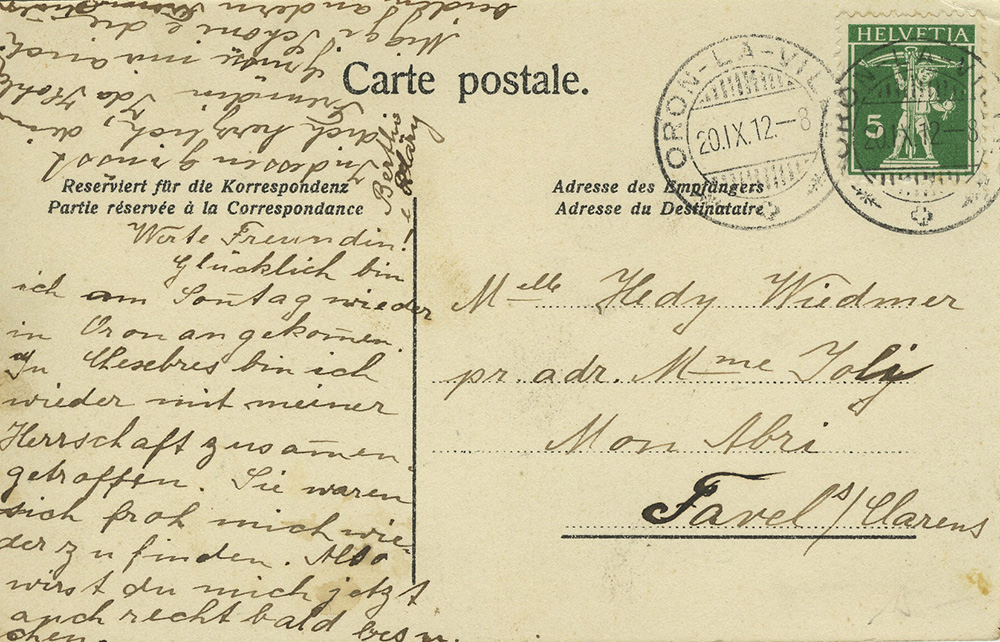 Carte postale.
HELVETIA
5
ORON-LA-VILLE
20.IX.12.–8
ORON-LA-VILLE
20.IX.12.–8
Reserviert für die Korrespondenz
Partie réservée à la Correspondance
Adresse des Empfängers
Adresse du Destinataire
Werte Freundin!
Glücklich bin
ich am Sontag wieder
in Oron angekom̄en.
In Chexbres bin ich
wieder mit meiner
Herrschaft zusam̄en-
getroffen. Sie waren
sich froh mich wie-
der zu finden. Also
wirst du mich jetzt
auch recht bald besu-
chen.
Indessen grüsst
dich herzlich, deine
Freundin Ida
Grüsse mir auch
Schöni die
beiden andern
Melle Hedy Wiedmer
pr. adr. Mme Joly
Mon Abri
Tavel s/Clarens